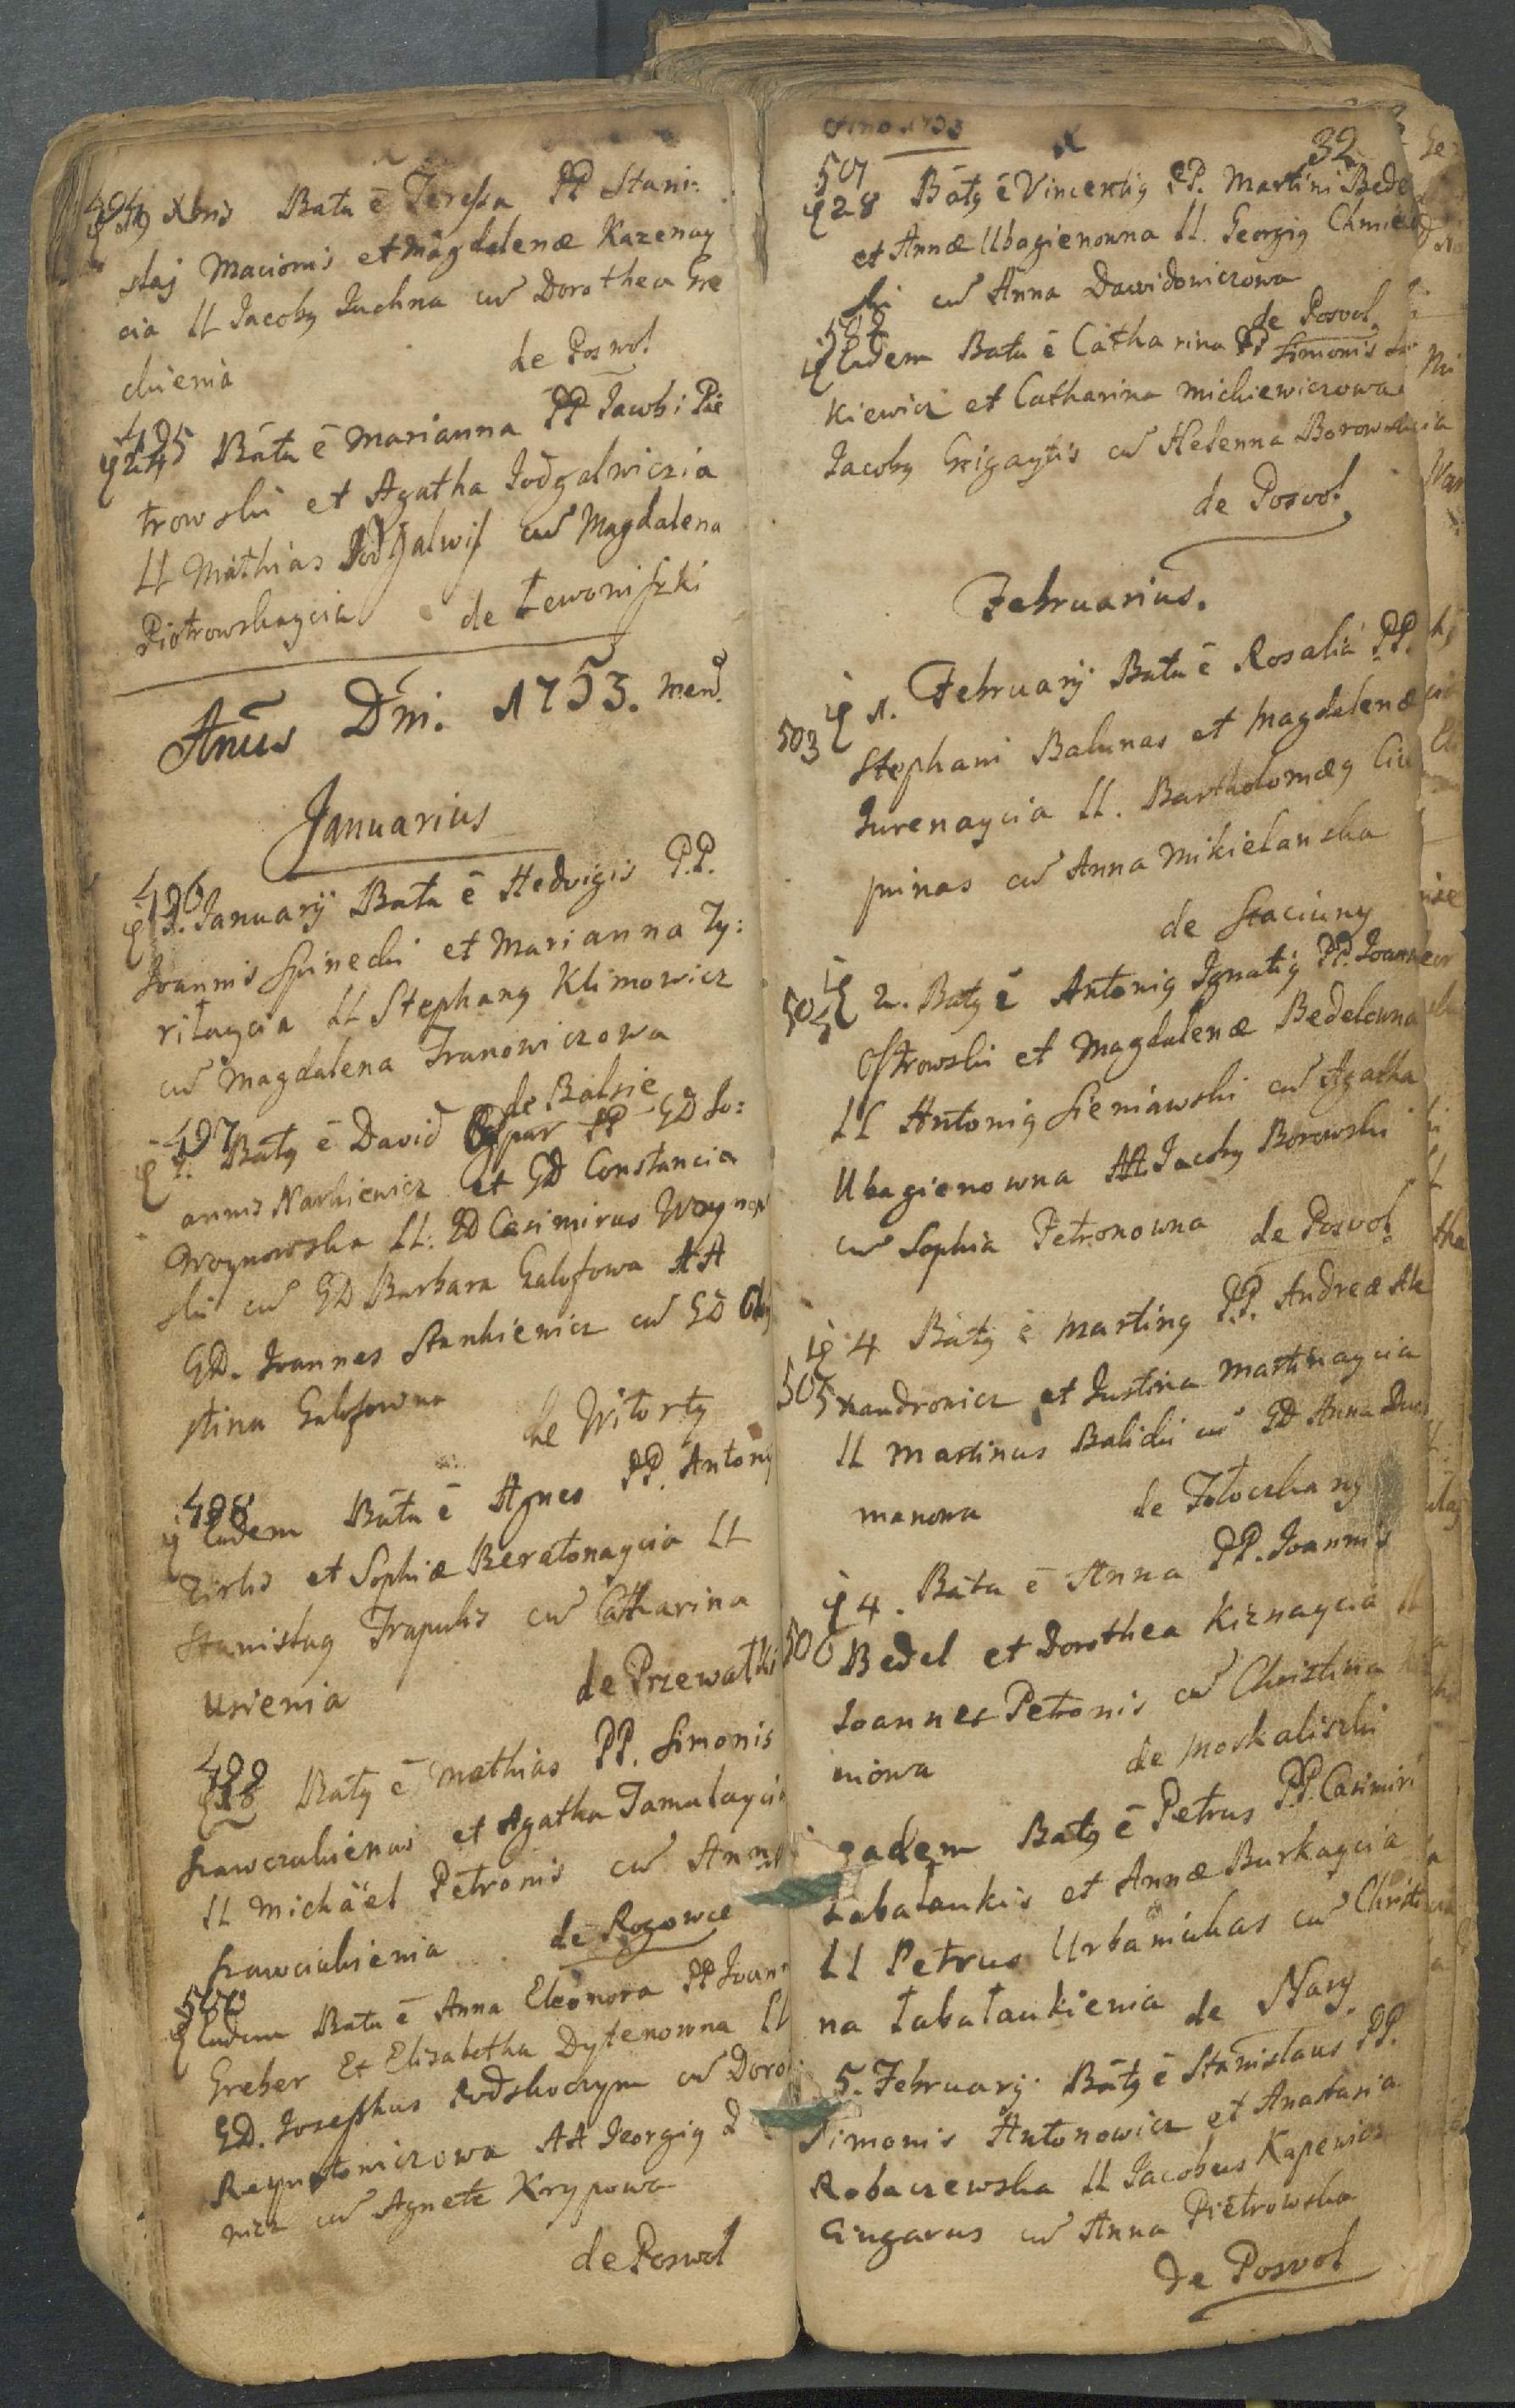 494
Xbris Bata ē Teressa PP Stani:
slaj Macionis et Magdalenæ Kazenay
cia LL Jacobg Juchna cū Dorothea Gre
chienia de Poswol
495
24 Bata ē Marianna PP Jacobi Pie
trowski et Agatha Jodgalwiczia
LL Mathias Jodgalwis cū Magdalena
Piotrowskaycia de Lewoniszki
Anūs Dni. 1753. mens
Januarius
496
Januarÿ Bata ē Hedvigis P.P.
Joannis Spinecki et Marianna Zy:
ritaycia LL Stephang Klimowicz
cū Magdalena Franowiczowa
de Balsie
497
Batg ē David PP GD Jo:
annis Narkiewicz et GD Constancia
Woynowska LL: GD Casimirus Woynow
ski cū GD Barbara Galofowa AA
GD. Joannes Stankiewicz cū GD
stina Galofowna de Witorty
498
Eadem Bata ē Agnes PP. Antony
Zirlis et Sophiæ Beratonaycia LL
Stanislag Trapulis cū Catharina
Usienia de Przewałki
499
18 Batg ē Mathias PP. Simonis
Szawczukienas et Agatha Tamulaycia
LL Michäel Petronis cū Anna
Szawciukienia de Rogowce
500
Eadem Bata ē Anna Eleonora PP Joan
Greber Et Elisabetha Dytenowna LL
GD. Josephus Podskoczym cū Doro
Raypoltowiczowa AA Georgig
nicz cū Agnete Krypowa
de Poswol
Anno 1753
32
501
28 Batg ē Vincentig PP. Martini Bede
et Annæ Ubagienowna LL. Georgig Chmiele
ski cū Anna Dawidowiczowa
de Posvol
502
Eadem Bata ē Catharina PP Simonis
kiewicz et Catharina Michiewiczowa
Jacobg Grigaytis cū Helenna Borowskaycia
de Posvol
Februarius.
503
1. Februarÿ Bata ē Rosalia PP.
Stephani Balunas et Magdalenæ
Jurenaycia LL. Bartholomæg Ciu
pinas cū Anna Mikielanska
de Staciuny
504
2. Batg ē Antonig Ignatig PP. Joannes
Ostrowski et Magdalenæ Bedelowna
LL Antonig Sieniawski cū Agatha
Ubagienowna AA Jacobg Borowski
cū Sophia Petronowna de Posvol
505
4 Batg ē Marting PP. Andreæ Ale
xandrowicz et Justina Martinaycia
LL Martinus Balicki cū GD Anna Du
manowa de Toloczkany
506
4. Bata ē Anna PP. Joannis
Bedel et Dorothea Kiznaycia LL
Joannes Petronis cū Christina
niowa de Moskaliszki
Eadem Batg ē Petrus P.P. Casimiri
Łabałaukis et Annæ Burkaycia
LL Petrus Urbanickas cū Christi
na Łabałaukienia de Nary
5. Februarÿ Batg ē Stanislaus PP.
Simonis Antonowicz et Anastasia
Robaczewska LL Jacobus Kapewicz
Cingarus cū Anna Pietrowska
de Posvol